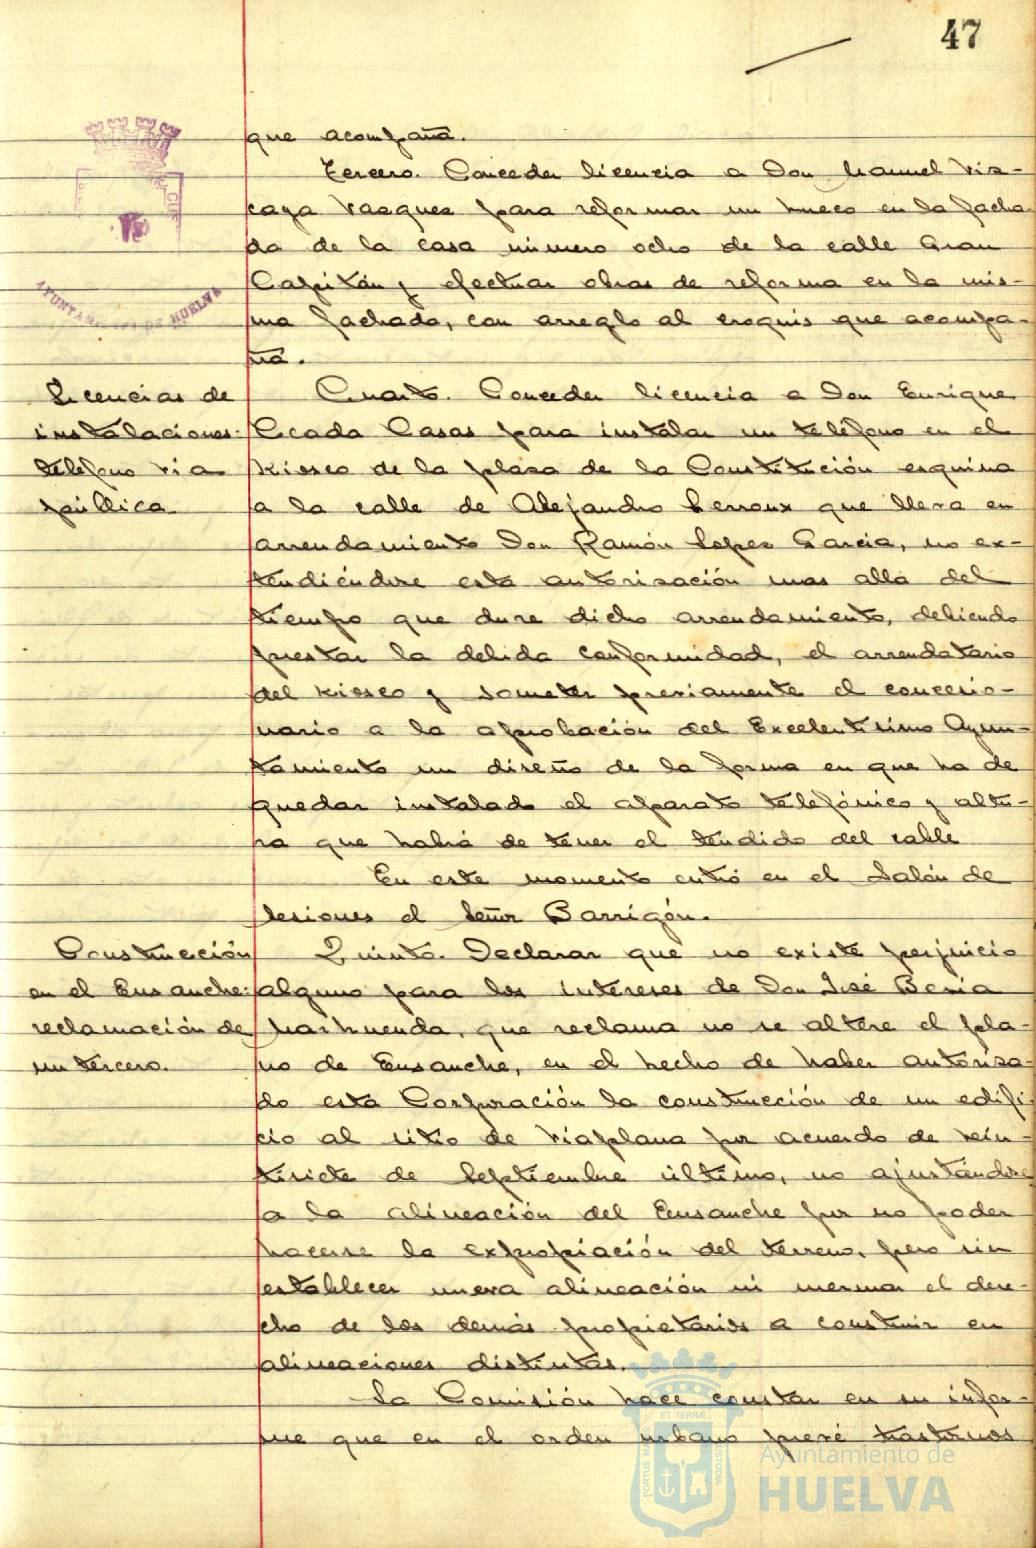 47
que acompaña.
Tercero. Conceder licencia a Don Manuel Viz-
caya Vazquez para reformar un hueco en la facha-
da de la casa número ocho de la calle Gran
Capitán y efectuar obras de reforma en la mis-
ma fachada, con arreglo al croquis que acompa-
ña.
AYUNTAMIENTO DE HUELVA
Licencias de
instalaciones:
telefono via
pública.
Cuarto. Conceder licencia a Don Enrique
Casas para instalar un teléfono en el
Kiosco de la plaza de la Constitución esquina
a la calle de Alejandro Lerroux que lleva en
arrendamiento Don Ramón Lopez Garcia, no ex-
tendiéndose esta autorización mas alla del
tiempo que dure dicho arrendamiento, debiendo
prestar la debida conformidad, el arrendatario
del Kiosco y someter previamente el concesio-
nario a la aprobación del Excelentísimo Ayun-
tamiento un diseño de la forma en que ha de
quedar instalado el aparato telefónico y altu-
ra que habrá de tener el tendido del cable
En este momento entró en el Salón de
Sesiones el Señor Barrigón.
Construcción
en el Ensanche:
reclamación de
un tercero.
Quinto. Declarar que no existe perjuicio
alguno para los intereses de Don José
que reclama no se altere el pla-
no de Ensanche, en el hecho de haber autoriza-
do esta Corporación la construcción de un edifi-
cio al sitio de Viaplana por acuerdo de vein-
tisiete de Septiembre último, no ajustándose
a la alineación del Ensanche por no poder
hacerse la expropiación del terreno, pero sin
establecer nueva alineación ni mermar el dere-
cho de los demás propietarios a construir en
alineaciones distintas.
La Comisión hace constar en su infor-
me que en el orden urbano prevé trastornos
PORTUS MARIS ET TERRÆ CUSTODIA
Ayuntamiento de
HUELVA